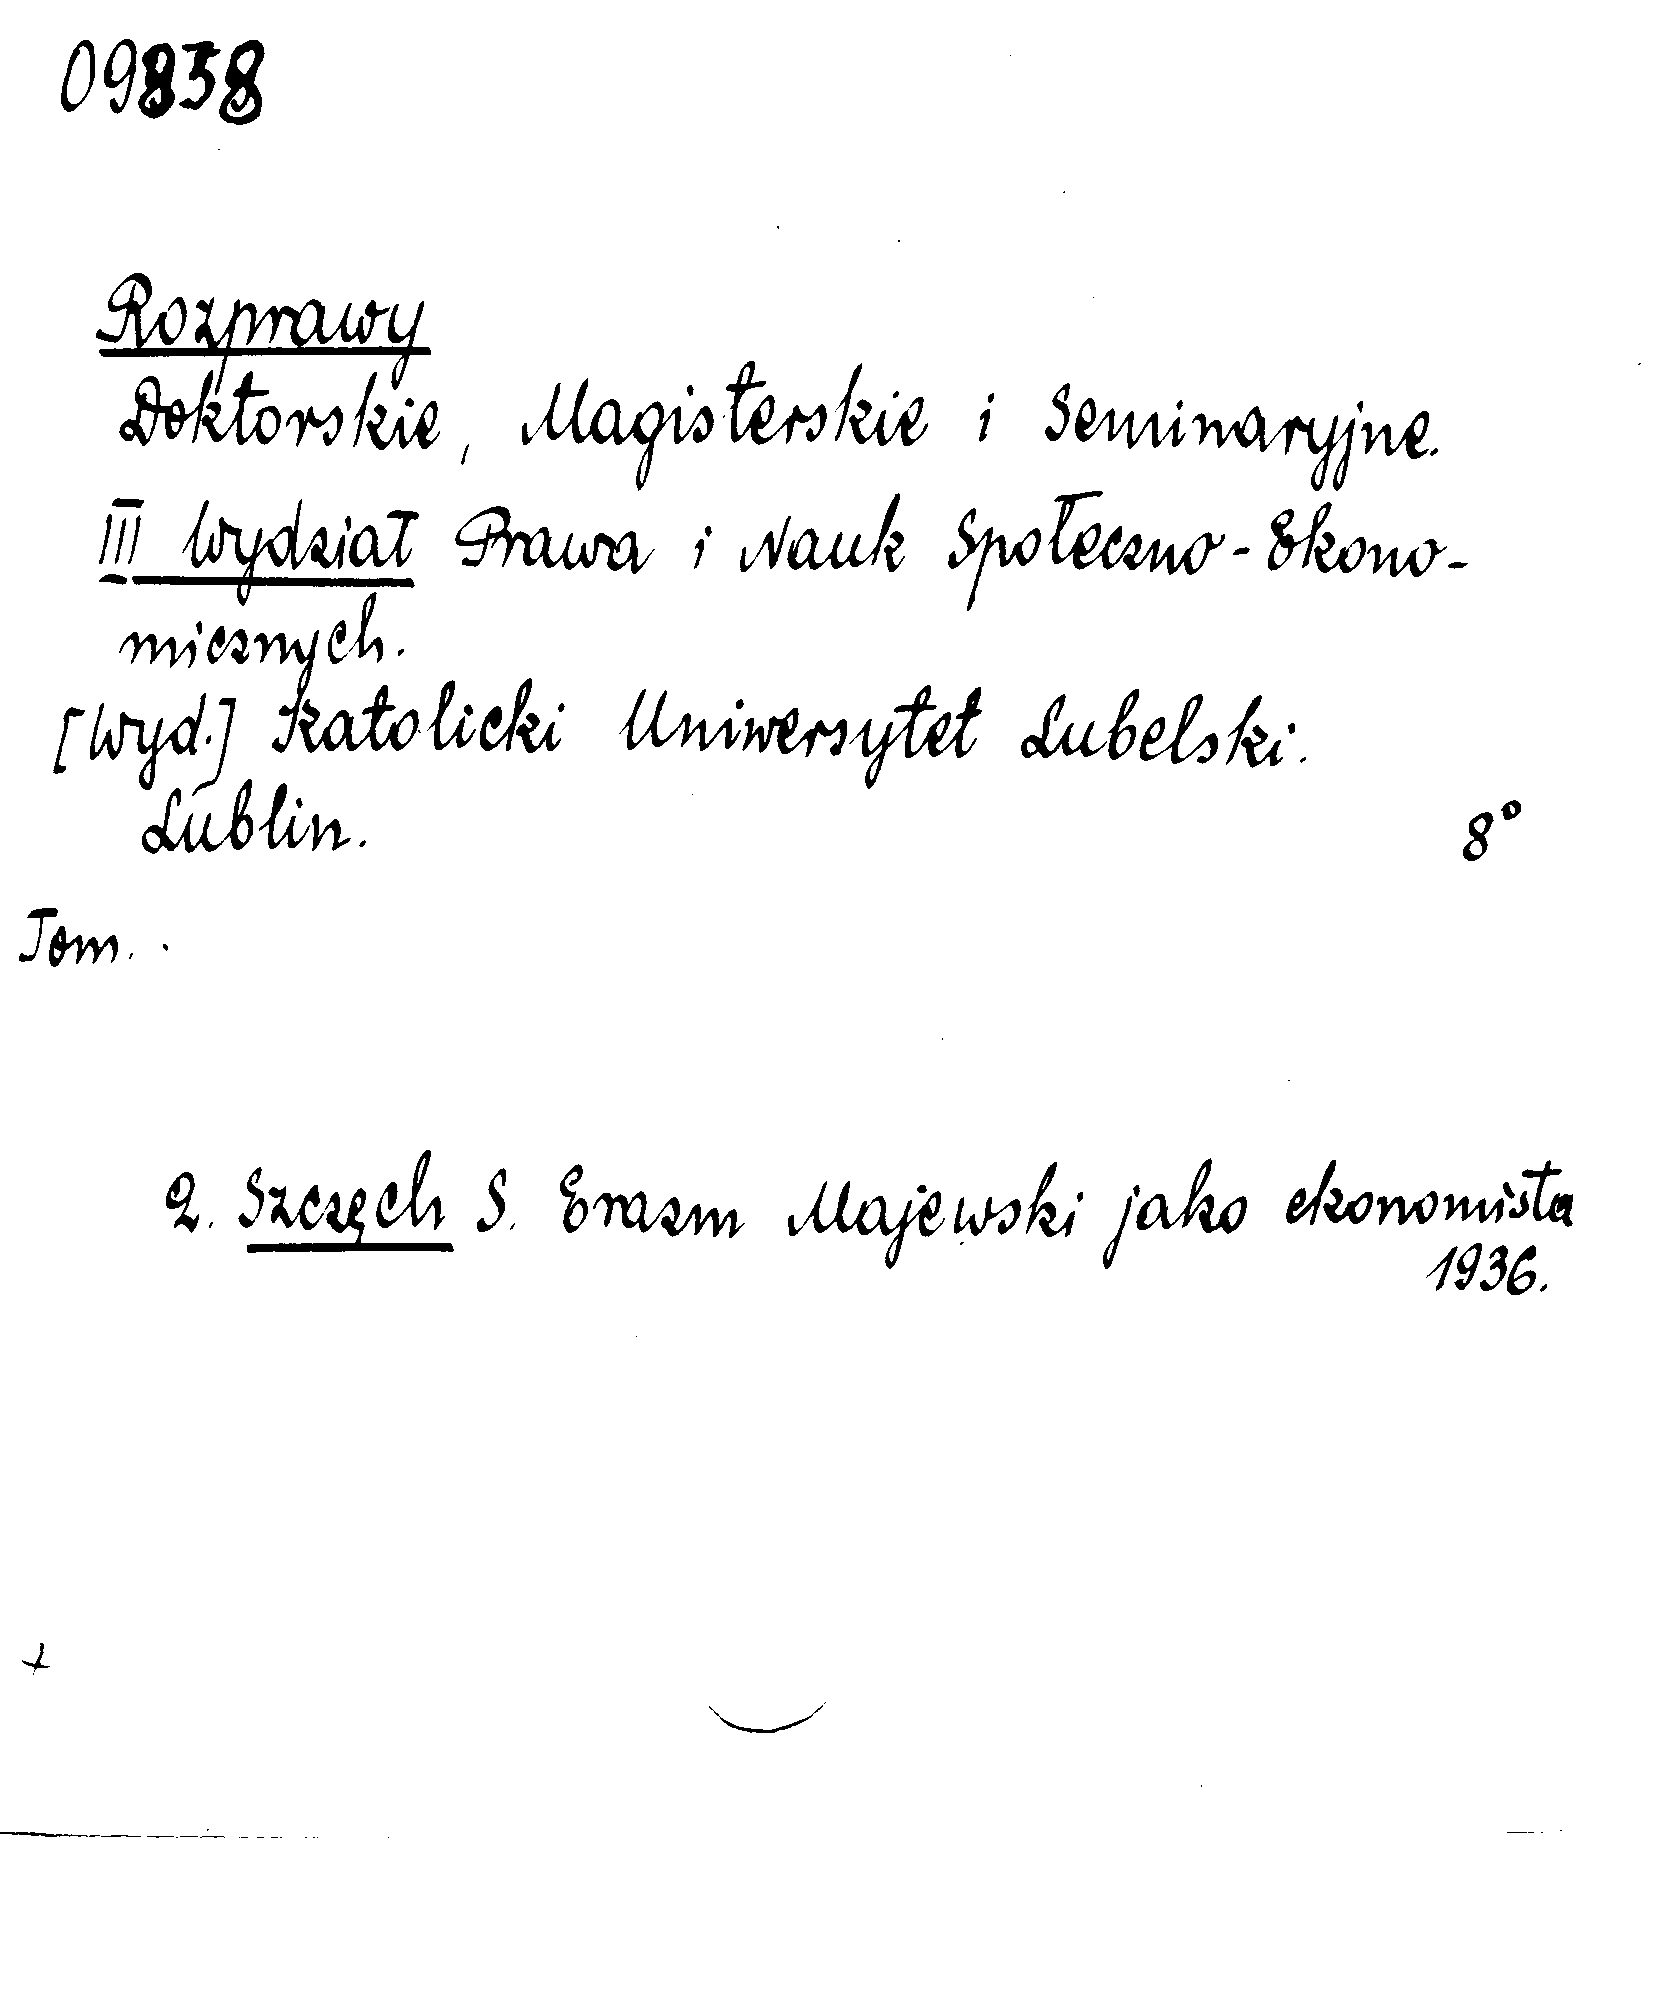 09838
Rozprawy
Doktorskie, Magisterskie i Seminaryjne.
III Wydział Prawa i Nauk Społeczno-Ekono-
micznych.
[Wyd.] Katolicki Uniwersytet Lubelski.
Lublin. 8°
Tom.
2. Szczęch S. Erazm Majewski jako ekonomista
1936.